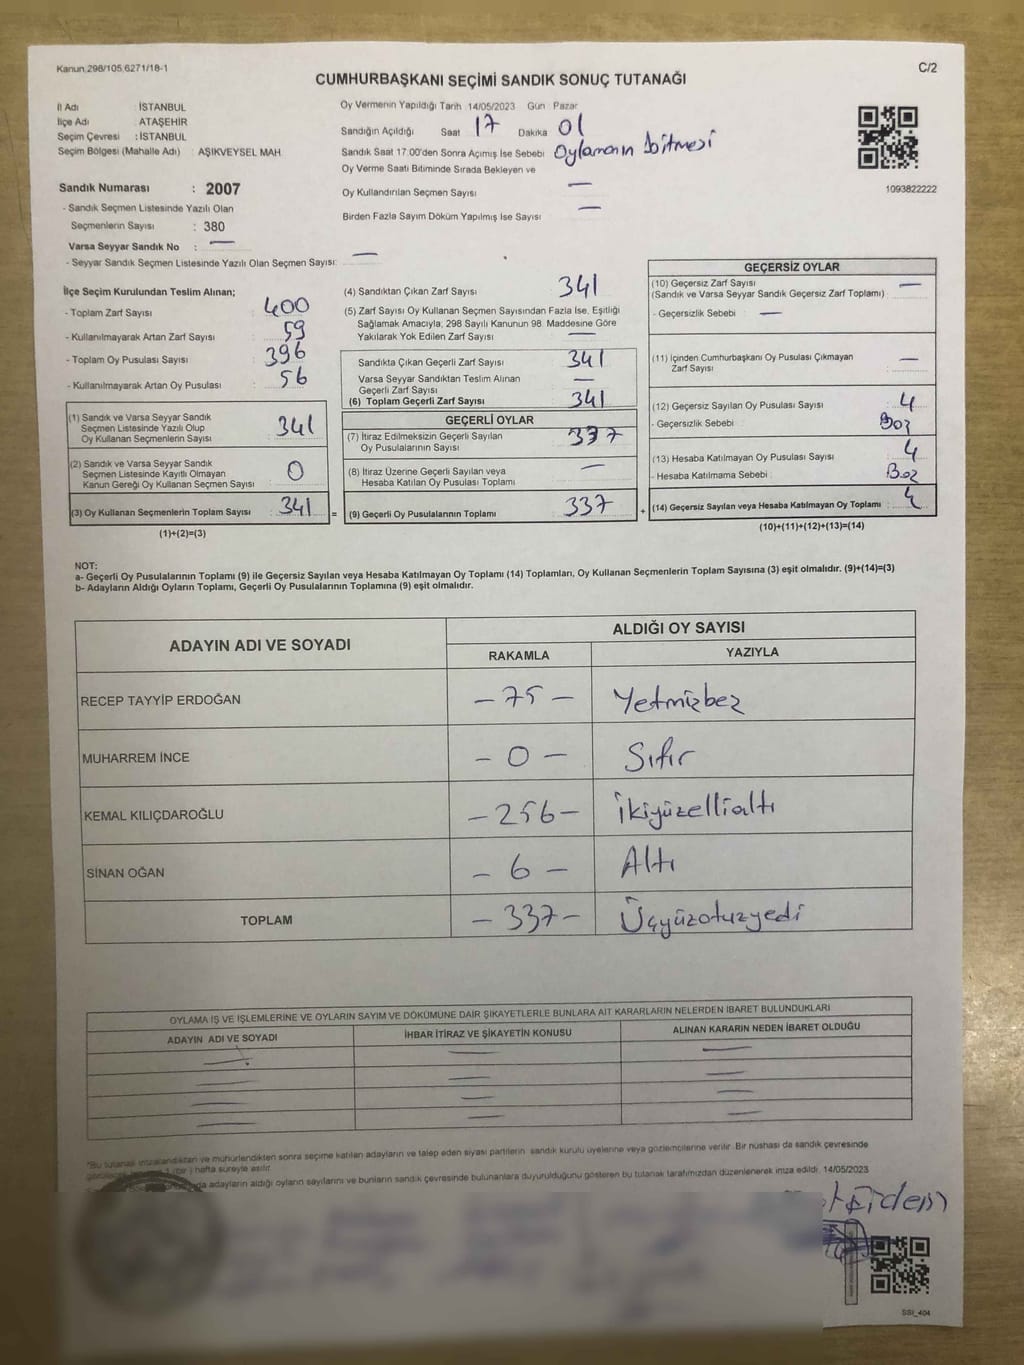 Kanun 298/105,6271/18-1
C/2
CUMHURBAŞKANI SEÇİMİ SANDIK SONUÇ TUTANAĞI
İl Adı : İSTANBUL
İlçe Adı : ATAŞEHİR
Seçim Çevresi : İSTANBUL
Seçim Bölgesi (Mahalle Adı) : AŞIKVEYSEL MAH
Sandık Numarası : 2007
- Sandık Seçmen Listesinde Yazılı Olan
Seçmenlerin Sayısı : 380
Varsa Seyyar Sandık No : —
- Seyyar Sandık Seçmen Listesinde Yazılı Olan Seçmen Sayısı: —
Oy Vermenin Yapıldığı Tarih 14/05/2023 Gün Pazar
Sandığın Açıldığı Saat 17 Dakika 01
Sandık Saat 17:00'den Sonra Açımış İse Sebebi Oylamanın bitmesi
Oy Verme Saati Bitiminde Sırada Bekleyen ve
Oy Kullandırılan Seçmen Sayısı —
Birden Fazla Sayım Döküm Yapılmış İse Sayısı —
1093822222
İlçe Seçim Kurulundan Teslim Alınan;
- Toplam Zarf Sayısı : 400
- Kullanılmayarak Artan Zarf Sayısı : 59
- Toplam Oy Pusulası Sayısı : 396
- Kullanılmayarak Artan Oy Pusulası : 56
(1) Sandık ve Varsa Seyyar Sandık
Seçmen Listesinde Yazılı Olup
Oy Kullanan Seçmenlerin Sayısı : 341
(2) Sandık ve Varsa Seyyar Sandık
Seçmen Listesinde Kayıtlı Olmayan
Kanun Gereği Oy Kullanan Seçmen Sayısı : 0
(3) Oy Kullanan Seçmenlerin Toplam Sayısı : 341
(1)+(2)=(3)
(4) Sandıktan Çıkan Zarf Sayısı : 341
(5) Zarf Sayısı Oy Kullanan Seçmen Sayısından Fazla İse, Eşitliği
Sağlamak Amacıyla; 298 Sayılı Kanunun 98. Maddesine Göre
Yakılarak Yok Edilen Zarf Sayısı : —
Sandıkta Çıkan Geçerli Zarf Sayısı : 341
Varsa Seyyar Sandıktan Teslim Alınan
Geçerli Zarf Sayısı : —
(6) Toplam Geçerli Zarf Sayısı : 341
GEÇERLİ OYLAR
(7) İtiraz Edilmeksizin Geçerli Sayılan
Oy Pusulalarının Sayısı : 337
(8) İtiraz Üzerine Geçerli Sayılan veya
Hesaba Katılan Oy Pusulası Toplamı : —
= (9) Geçerli Oy Pusulalarının Toplamı : 337
GEÇERSİZ OYLAR
(10) Geçersiz Zarf Sayısı : —
(Sandık ve Varsa Seyyar Sandık Geçersiz Zarf Toplamı)
- Geçersizlik Sebebi : —
(11) İçinden Cumhurbaşkanı Oy Pusulası Çıkmayan
Zarf Sayısı : —
(12) Geçersiz Sayılan Oy Pusulası Sayısı : 4
- Geçersizlik Sebebi :
(13) Hesaba Katılmayan Oy Pusulası Sayısı : 4
- Hesaba Katılmama Sebebi :
+ (14) Geçersiz Sayılan veya Hesaba Katılmayan Oy Toplamı : 4
(10)+(11)+(12)+(13)=(14)
NOT:
a- Geçerli Oy Pusulalarının Toplamı (9) ile Geçersiz Sayılan veya Hesaba Katılmayan Oy Toplamı (14) Toplamları, Oy Kullanan Seçmenlerin Toplam Sayısına (3) eşit olmalıdır. (9)+(14)=(3)
b- Adayların Aldığı Oyların Toplamı, Geçerli Oy Pusulalarının Toplamına (9) eşit olmalıdır.
ADAYIN ADI VE SOYADI ALDIĞI OY SAYISI
RAKAMLA YAZIYLA
RECEP TAYYİP ERDOĞAN - 75 - Yetmişbeş
MUHARREM İNCE - 0 - Sıfır
KEMAL KILIÇDAROĞLU - 256 - İkiyüzellialtı
SİNAN OĞAN - 6 - Altı
TOPLAM - 337 - Üçyüzotuzyedi
OYLAMA İŞ VE İŞLEMLERİNE VE OYLARIN SAYIM VE DÖKÜMÜNE DAİR ŞİKAYETLERLE BUNLARA AİT KARARLARIN NELERDEN İBARET BULUNDUKLARI
ADAYIN ADI VE SOYADI İHBAR İTİRAZ VE ŞİKAYETİN KONUSU ALINAN KARARIN NEDEN İBARET OLDUĞU
*Bu tutanak imzalandıktan ve mühürlendikten sonra seçime katılan adayların ve talep eden siyasi partilerin sandık kurulu üyelerine veya gözlemcilerine verilir. Bir nüshası da sandık çevresinde
1 (bir) hafta süreyle asılır.
adayların aldığı oyların sayılarını ve bunların sandık çevresinde bulunanlara duyurulduğunu gösteren bu tutanak tarafımızdan düzenlenerek imza edildi. 14/05/2023
SSI_404